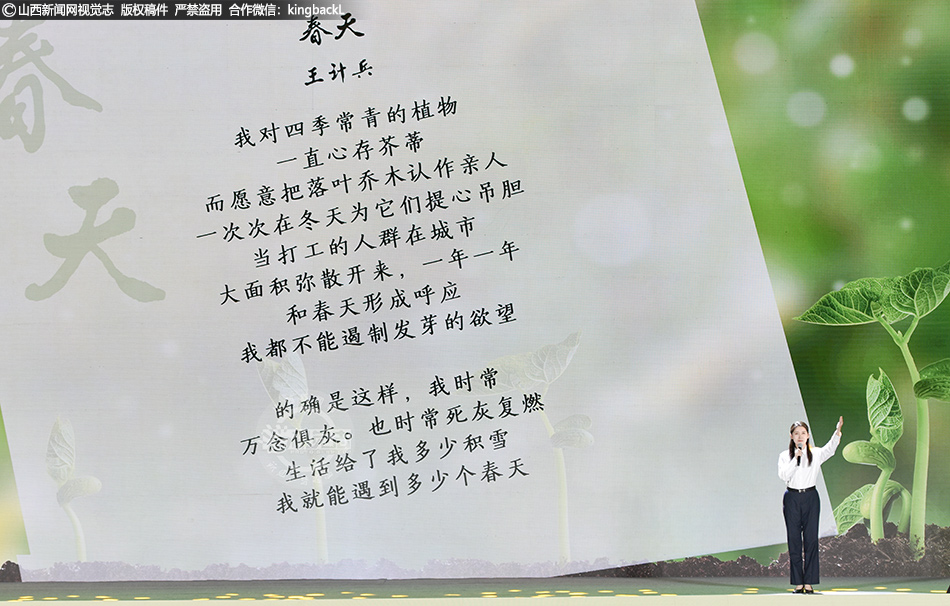 ©山西新闻网视觉志 版权稿件 严禁盗用 合作微信：kingbackL
春天
春天
王计兵
我对四季常青的植物
一直心存芥蒂
而愿意把落叶乔木认作亲人
一次次在冬天为它们提心吊胆
当打工的人群在城市
大面积弥散开来，一年一年
和春天形成呼应
我都不能遏制发芽的欲望
的确是这样，我时常
万念俱灰。也时常死灰复燃
生活给了我多少积雪
我就能遇到多少个春天